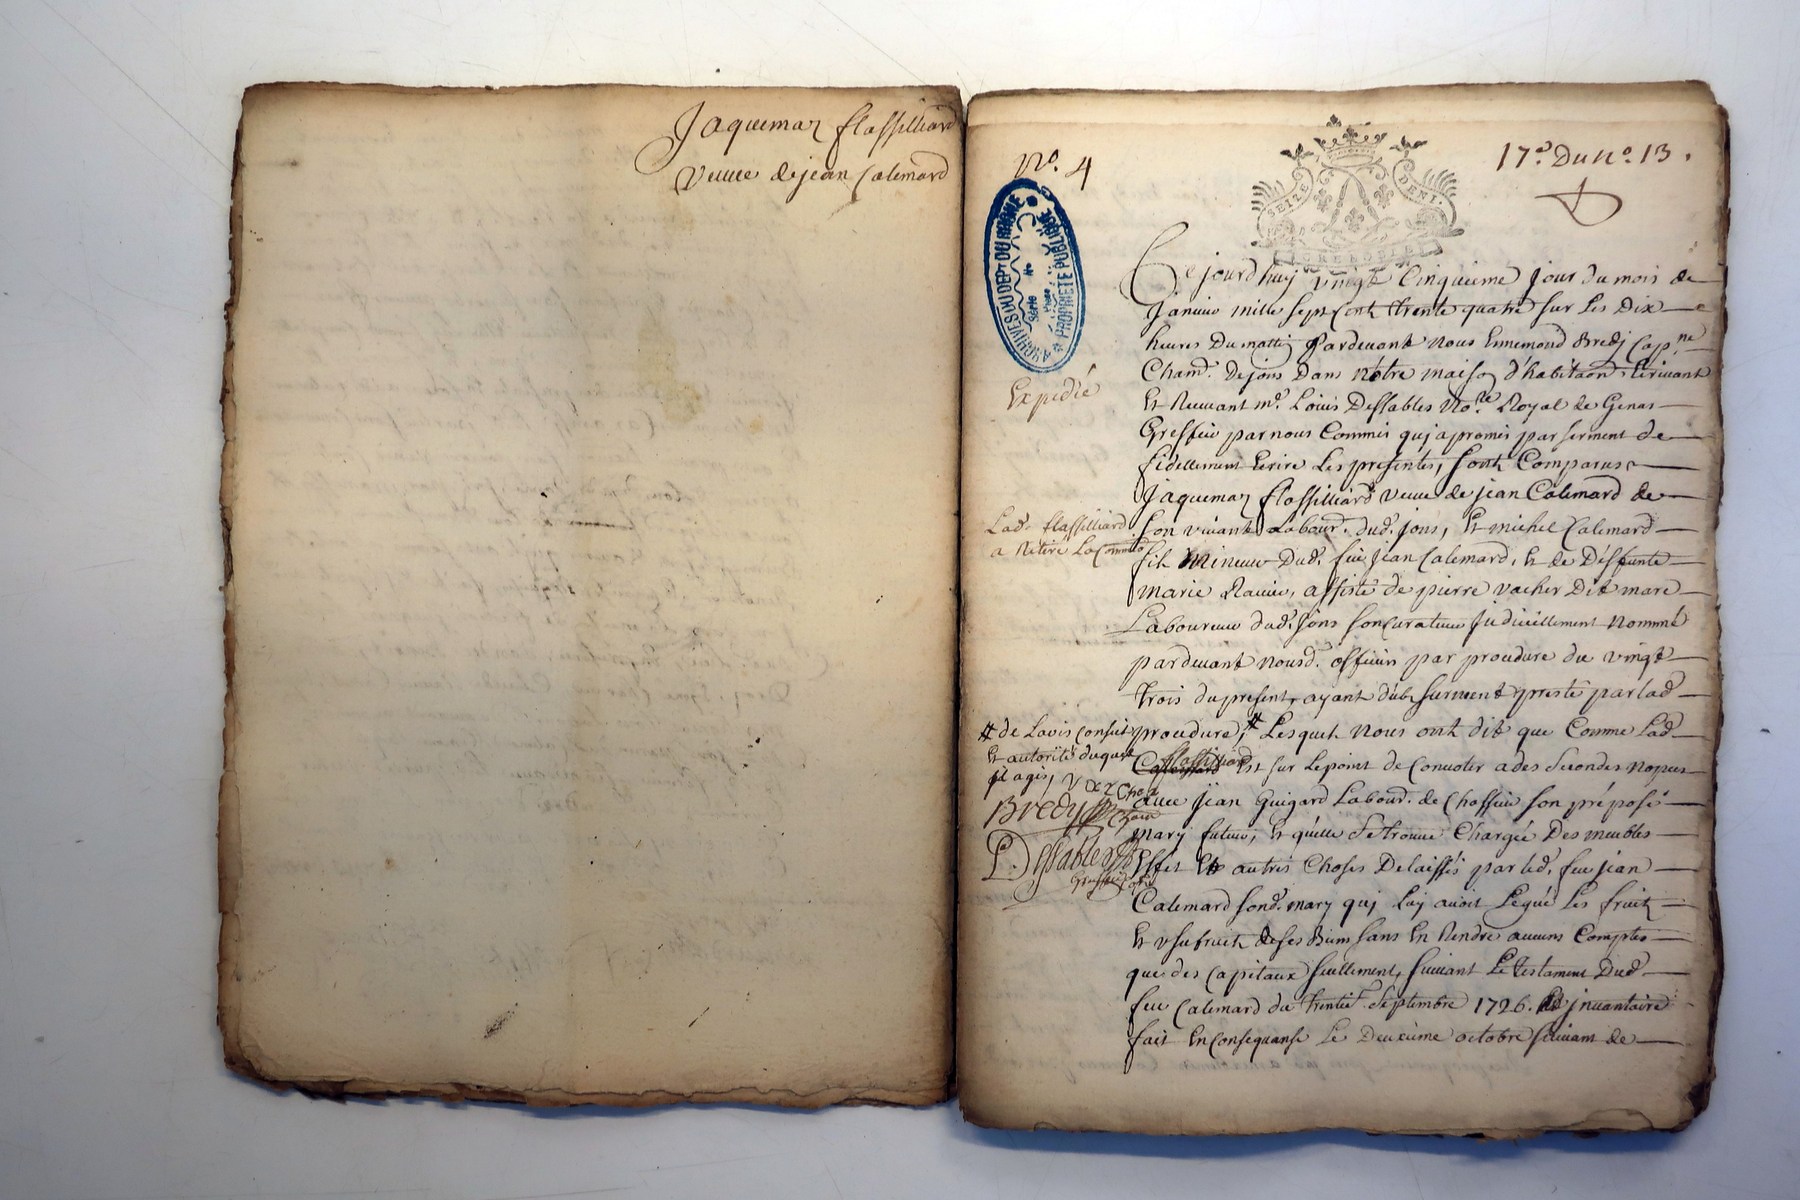 Jaquemaz flassilliard
veuve de jean Calemard
No. 4
17.e Du No. 13.
SEIZE DENI.
GRENOBLE
ARCHIVES DU DEPT DU RHONE
Série No
PROPRIETE PUBLIQUE
Expedié
Cejourd'huy vingt Cinquieme jour du mois de
Janvier mille sept Cent trente quatre sur Les Dix
heures Du mattin Pardevant Nous Ennemond Bredy Cap.ne
Chatt. de jons Dans Nôtre maison d'habitaon, Ecrivant
Et Recevant me. Louis Dessables No.re Royal de Genas
Greffier par nous Commis quj a promis par serment de
fidellement Ecrire Les presentes, sont Comparus
Jaquemaz flassilliard veuve de jean Calemard de
son vivant Labour. dud. jons, Et michel Calemard
fils mineur Dud. feu jean Calemard, Et de Deffunte
marie Ravier, assisté de pierre vacher Dit mare
Laboureur dud. jons son curateur judiciellement Nommé
pardevant nousd. officier par procedure du vingt
trois du present, ayant dub serment presté par lad
procedure, # Lesquels Nous ont dit que Comme Lad
flassilliard Est sur Le point de Convoler a des secondes Nopces
avec jean Guigard Labour. de Chassieu son préposé
mary futeur, Et qu'elle se trouve Chargée Des meubles
Effet Et autres Choses Delaissés par led. feu jean
Calemard sond. mary quj luy avoit Legué Les fruits
Et usufruits de ses Biens sans En Rendre aucuns Comptes
que des Capitaux seullement, suivant Le testament Dud
feu Calemard du trentie Septembre 1726. Et jnvantaire
fait En Consequanse Le Deuxième octobre suivant de
Lad. flassilliard
a Retiré La Commis
# de Lavis Conseil
Et autorité duquel
il agis,
Bredy
Chatt
L. Dessables
Greffier